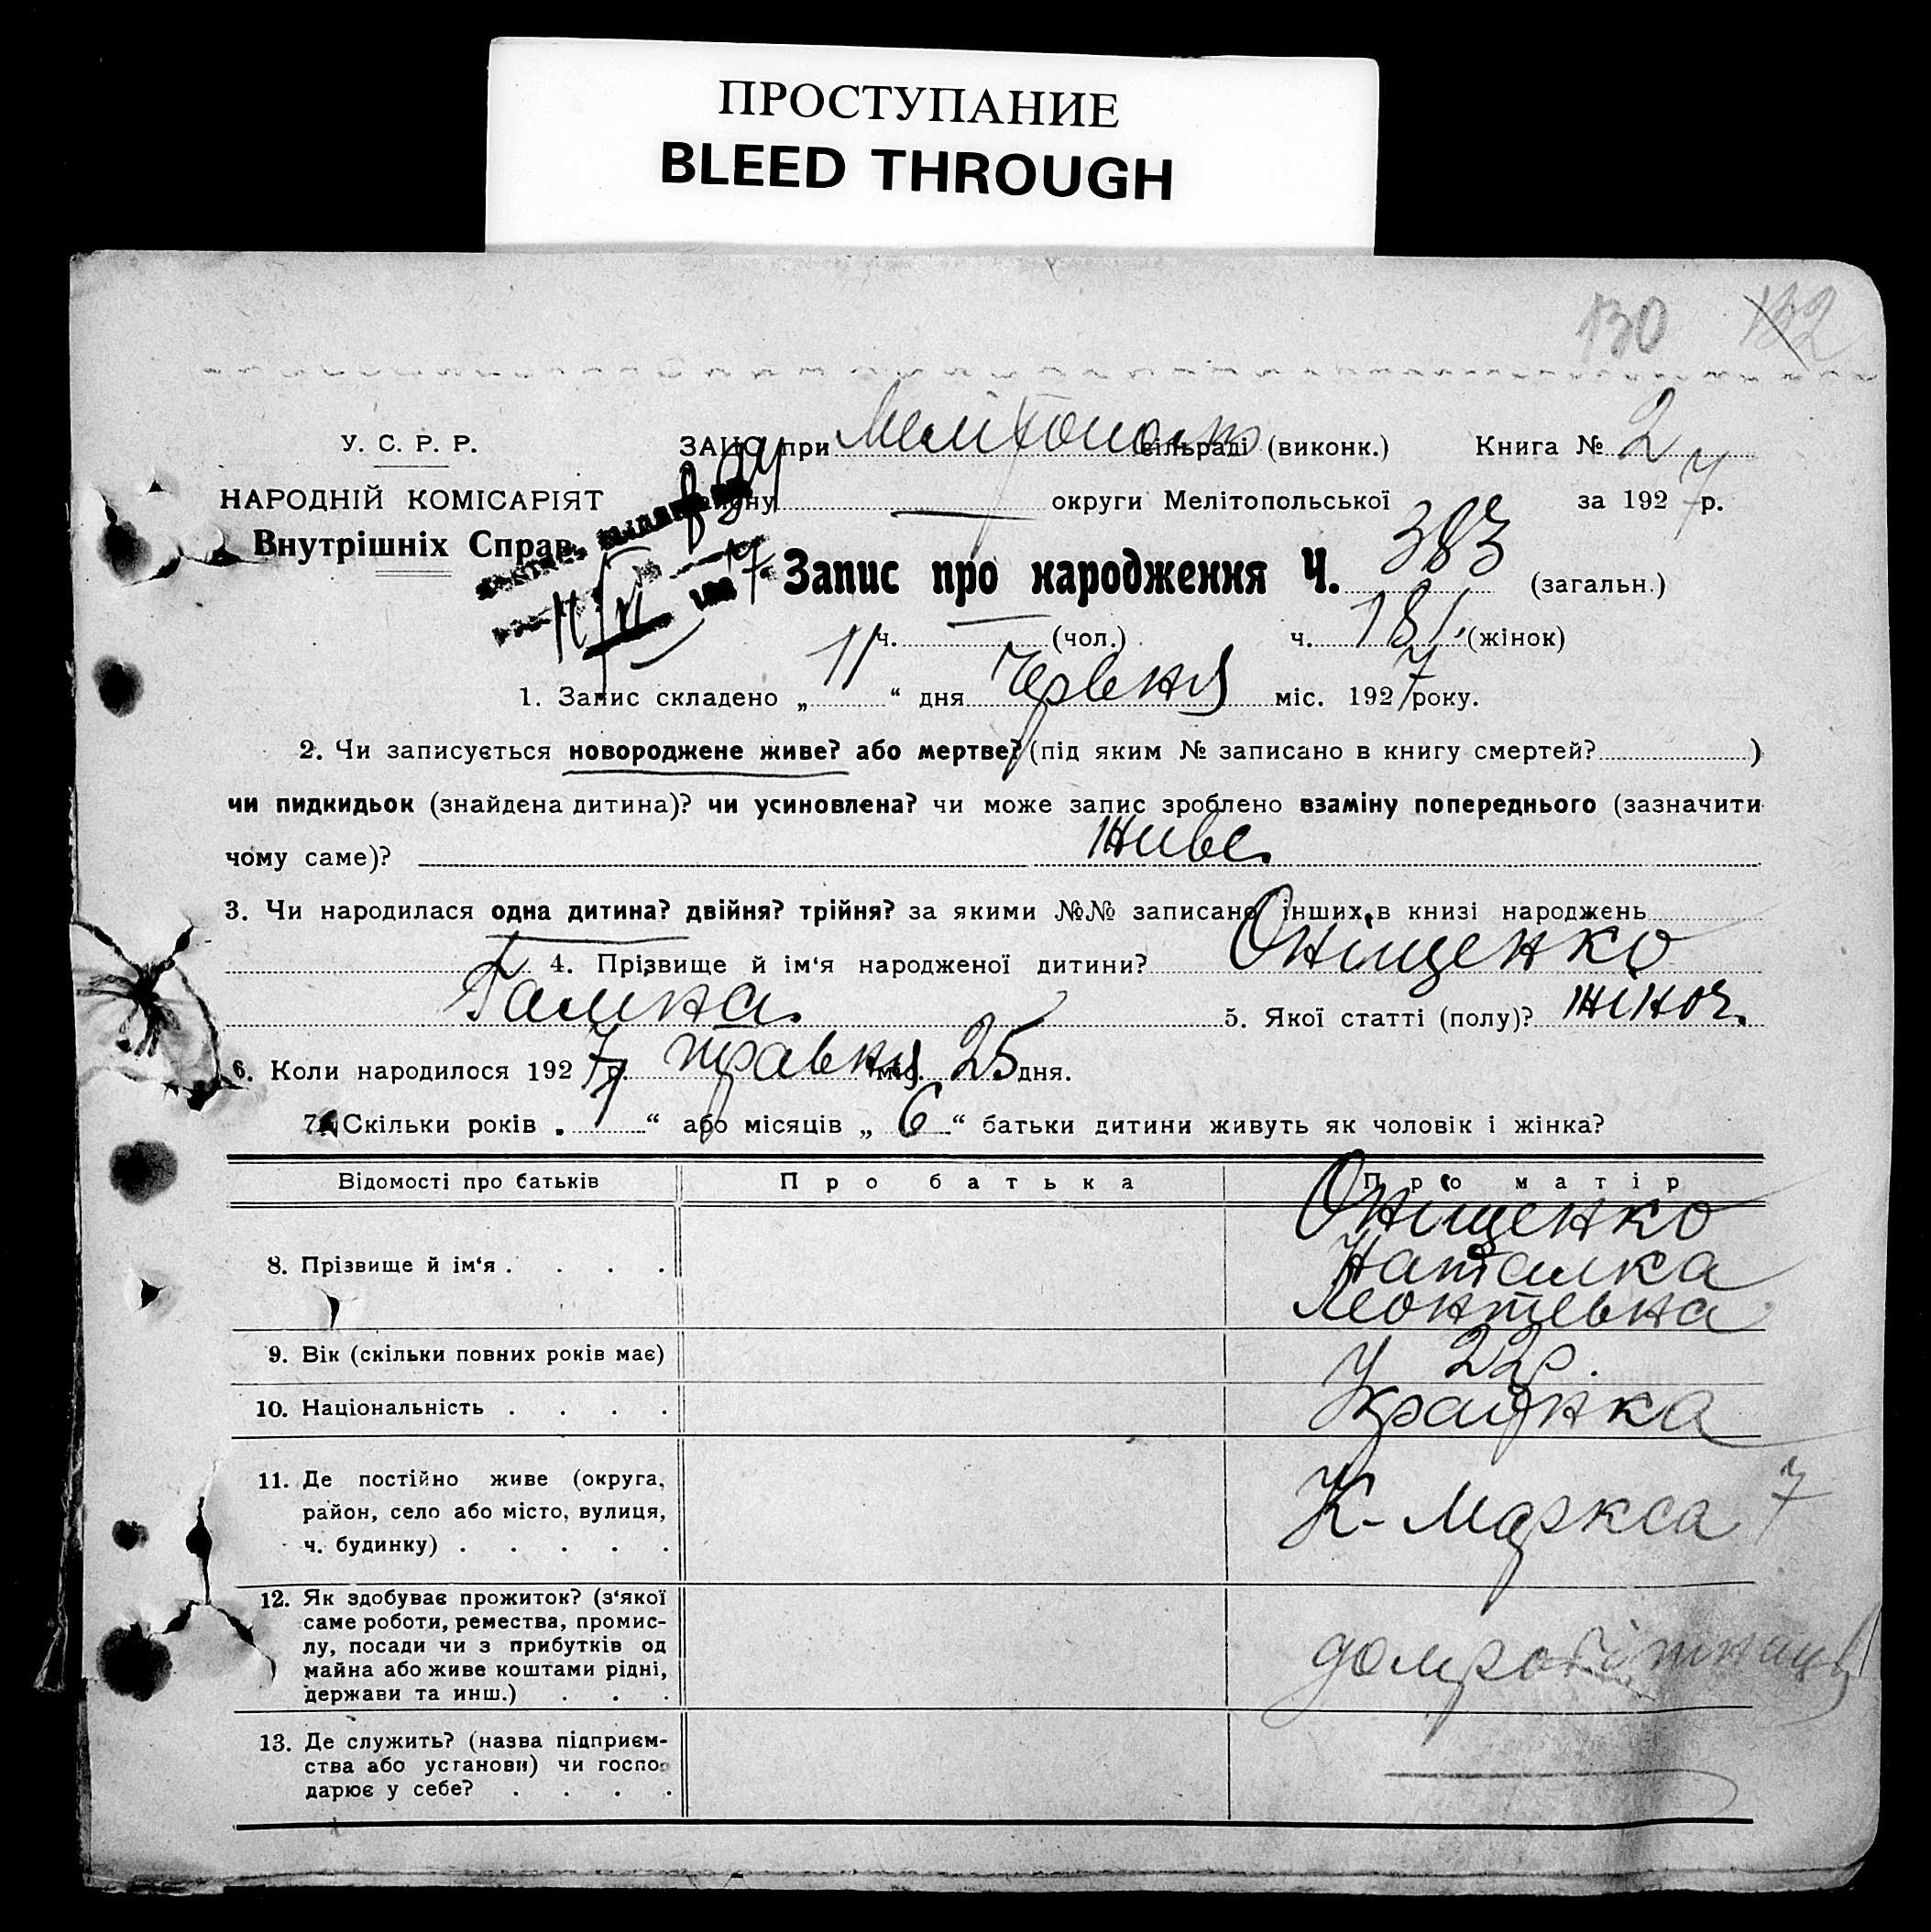 ПРОСТУПАНИЕ
BLEED THROUGH
130 132
У. С. Р. Р. ЗАЦС при Мелітополь сільраді (виконк.) Книга № 2
НАРОДНІЙ КОМІСАРІЯТ району округи Мелітопольської за 1927 р.
Внутрішніх Справ
Запис про народження Ч. 383 (загальн.)
ч. — (чол.) ч. 181 (жінок)
1. Запис складено „ 11 “ дня Червня міс. 1927 року.
2. Чи записується новороджене живе? або мертве? (під яким № записано в книгу смертей? )
чи пидкидьок (знайдена дитина)? чи усиновлена? чи може запис зроблено взаміну попереднього (зазначити
чому саме)? Живе.
3. Чи народилася одна дитина? двійня? трійня? за якими №№ записано інших в книзі народжень
4. Прізвище й ім'я народженої дитини? Оніщенко
Галина. 5. Якої статті (полу)? жіноч.
6. Коли народилося 1927 р. травня міс. 25 дня.
7. Скільки років „ 1 “ або місяців „ 6 “ батьки дитини живуть як чоловік і жінка?
Відомості про батьків Про батька Про матір
8. Прізвище й ім'я . . . . Оніщенко
Наталка
Леонтевна
9. Вік (скільки повних років має) 22 р.
10. Національність . . . . Українка
11. Де постійно живе (округа,
район, село або місто, вулиця,
ч. будинку) . . . . . К- Маркса 7
12. Як здобуває прожиток? (з'якої
саме роботи, ремества, промис-
лу, посади чи з прибутків од
майна або живе коштами рідні,
держави та инш.) . . . домробітниця
13. Де служить? (назва підприєм-
ства або установи) чи госпо-
дарює у себе? . . . . —